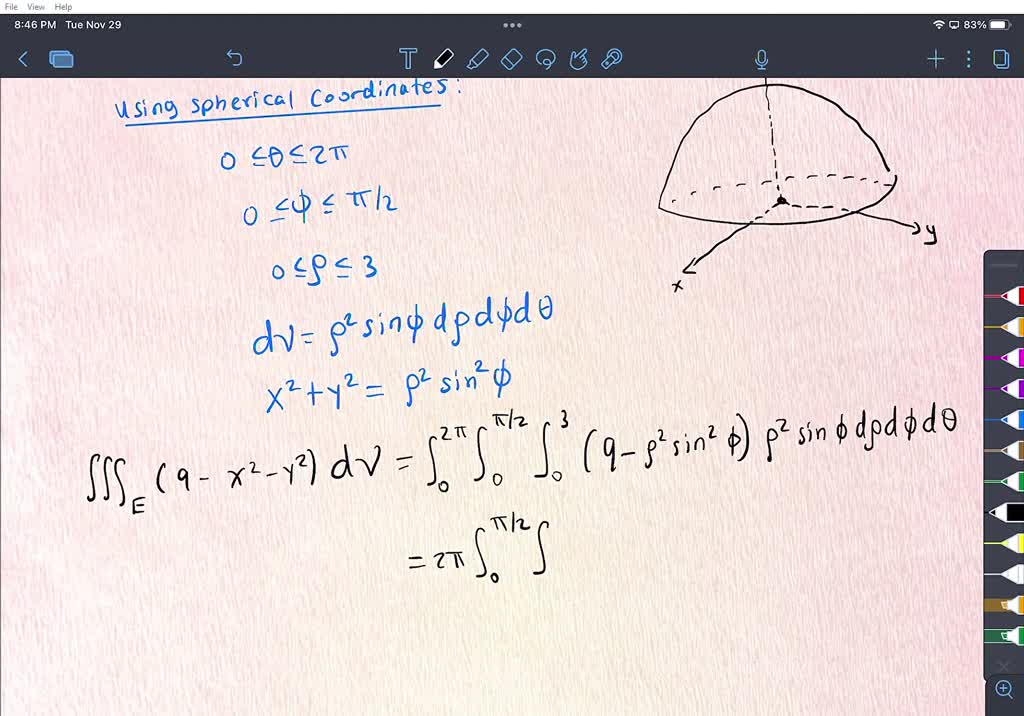 File View Help
8:46 PM Tue Nov 29
83%
T
Using spherical Coordinates:
0 ≤ θ ≤ 2π
0 ≤ φ ≤ π/2
0 ≤ ρ ≤ 3
dV = ρ² sinφ dρdφdθ
x² + y² = ρ² sin² φ
∭_E (9 - x² - y²) dV = ∫₀^2π ∫₀^π/2 ∫₀^3 (9 - ρ² sin² φ) ρ² sin φ dρdφdθ
= 2π ∫₀^π/2 ∫
y
x